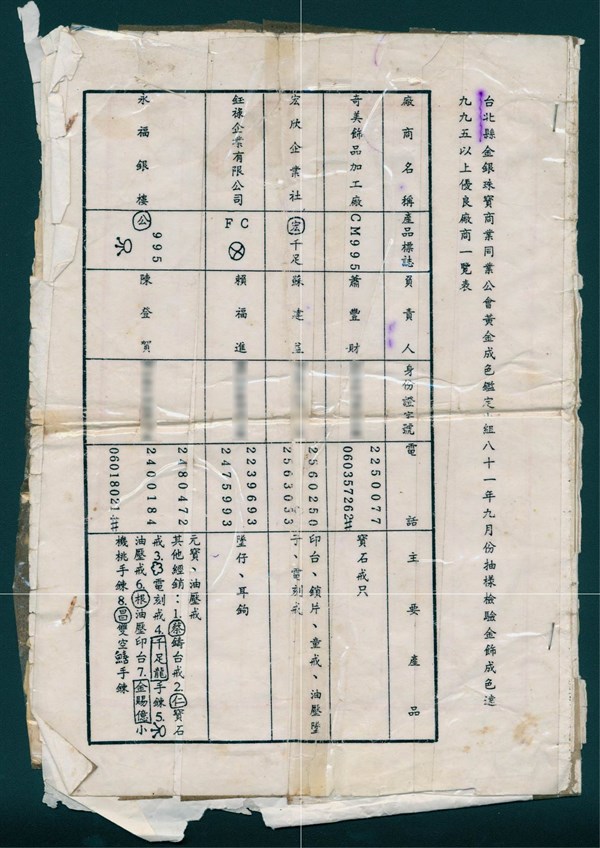 台北縣金銀珠寶商業同業公會黃金成色鑑定小組八十一年九月份抽樣檢驗金飾成色達
九九五以上優良廠商一覽表
廠商名稱
產品標誌
負責人
身份證字號
電話
主要產品
奇美飾品加工廠
CM995
蕭豐財
2250077
060357262#
寶石戒只
宏欣企業社
宏千足
蘇建
2560250
2563033
印台、鎖片、童戒、油壓墜
子、電刻戒
鈺祿企業有限公司
FC
賴福進
2239693
2475993
墜仔、耳鉤
永福銀樓
公 995
陳登賀
2480472
2400184
06018021#
元寶、油壓戒
其他經銷：1.蔡鑄台戒2.仁寶石
戒3.電刻戒4.千足龍手鍊5.
油壓戒6.根油壓印台7.金賜億小
機桃手鍊8.昌雙空手鍊